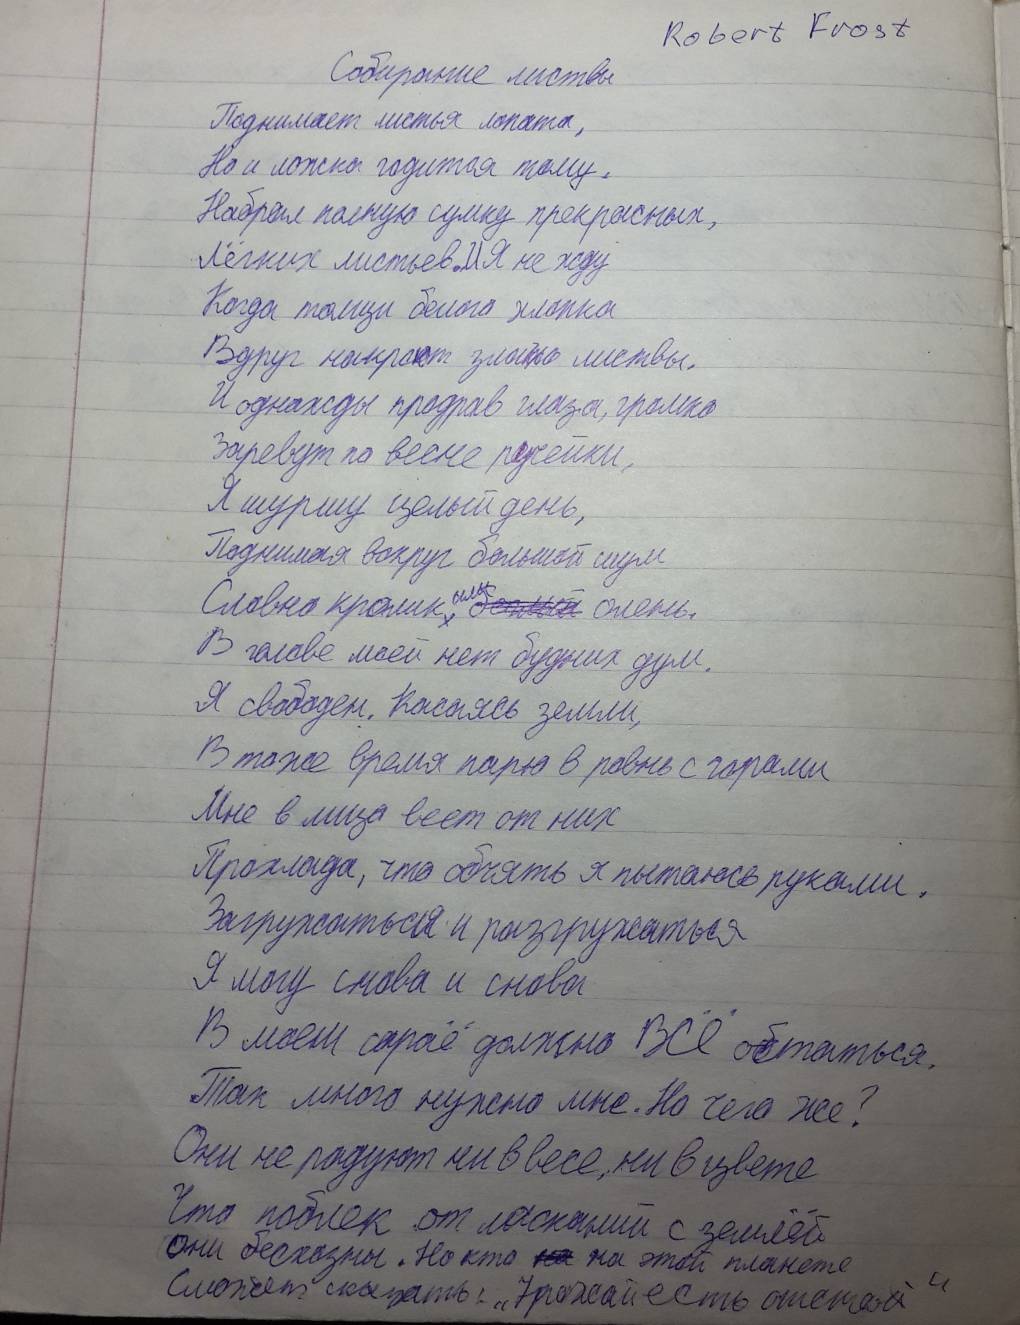 Robert Frost
Собирание листвы
Поднимает листья лопата,
Но и ложка годится тому.
Набрал полную сумку прекрасных,
Лёгких листьев. И Я не жду
Когда толщи белого хлопка
Вдруг накроют злато листвы.
И однажды продрав глаза, громко
Заревут по весне ручейки,
Я шуршу целый день,
Поднимая вокруг большой шум
Словно кролик, олень.
В голове моей нет будних дум.
Я свободен. Касаясь земли,
В тоже время парю в ровнь с горами
Мне в лицо веет от них
Прохлада, что объять я пытаюсь руками.
Загружаться и разгружаться
Я могу снова и снова
В моем сарае должно ВСЁ остаться.
Так много нужно мне. Но чего же?
Они не радуют ни в весе, ни в цвете
Что поблек от ласканий с землёй
Они бесхозны. Но кто на этой планете
Сможет сказать: „Урожай есть отстой"